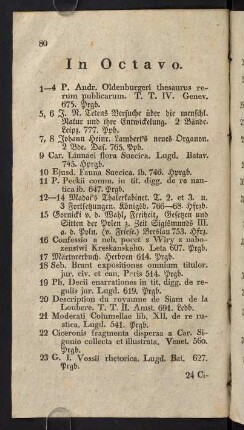 80
In Octavo.
1—4 P. Andr. Oldenburgeri thesaurus re-
rum publicarum. T. T. IV. Genev.
675. Prgb.
5, 6 J. N. Tetens Versuche über die menschl.
Natur und ihre Entwickelung. 2 Bände.
Leipz. 777. Ppb.
7, 8 Johann Heinr. Lambert's neues Organon.
2 Bde. Das. 765. Ppb.
9 Car. Linnaei flora Suecica. Lugd. Batav.
745. Hprgb.
10 Ejusd. Fauna Suecica. ib. 746. Hprgb.
11 P. Peckii comm. in tit. digg. de re nau-
tica ib. 647. Prgb.
12—14 Madai's Thalerkabinet. T. 2. et 3. u.
3 Fortsetzungen. Königsb. 766—68. Hfrzb.
15 Gorniki v. d. Wahl, Freiheit, Gesetzen und
Sitten der Polen z. Zeit Sigismunds III.
a. d. Poln. (v. Friese.) Breslau 753. Hfrz.
16 Confessio a neb, pocet s Wiry a nabo-
zenstwi Kreskanskaho. Leta 607. Prgb.
17 Märtinerbuch. Herborn 614. Prgb.
18 Seb. Brant expositiones omnium titulor.
jur. civ. et can. Paris 514. Prgb.
19 Ph. Decii enarrationes in tit. digg. de re-
gulis jur. Lugd. 619. Prgb.
20 Description du royaume de Siam de la
Loubere. T. T. II. Amst. 691. Ldbb.
21 Moderati Columellae lib. XII. de re ru-
stica. Lugd. 541. Prgb.
22 Ciceronis fragmenta dispersa a Car. Si-
gonio collecta et illustrata, Venet. 560.
Prgb.
23 G. I. Vossii rhetorica. Lugd. Bat. 627.
Prgb.
24 Ci-